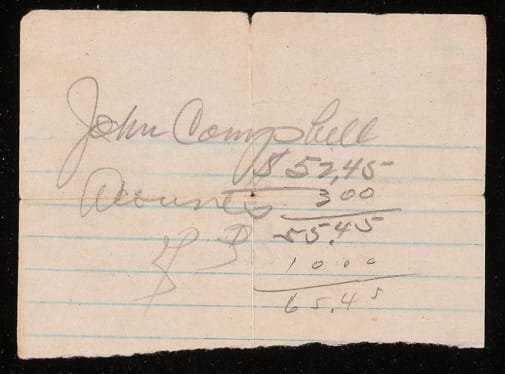 John Campbell
$ 52,45
Acounts 3 00
55.45
10 00
65.45